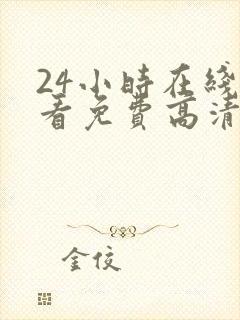 24小時在綫
看免費高清
金佼